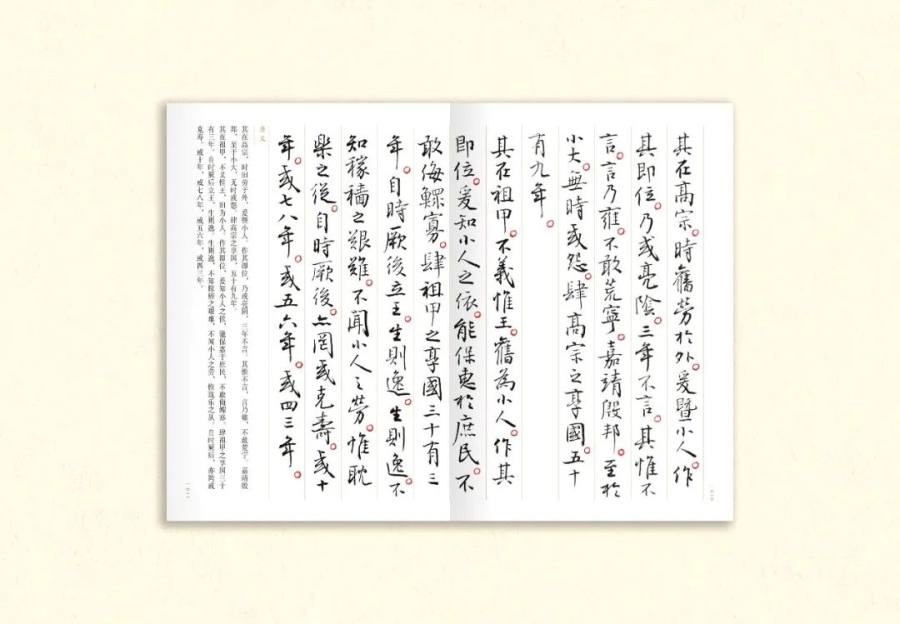 其在高宗。時舊勞於外。爰暨小人作
其即位。乃或亮陰。三年不言。其惟不
言。言乃雍。不敢荒寧。嘉靖殷邦。至於
小大。無時或怨。肆高宗之享國。五十
有九年。
其在祖甲。不義惟王。舊為小人。作其
即位。爰知小人之依。能保惠於庶民。不
敢侮鰥寡。肆祖甲之享國三十有三
年。自時厥後立王。生則逸。生則逸。不
知稼穡之艱難。不聞小人之勞。惟耽
樂之從。自時厥後。亦罔或克壽。或十
年。或七八年。或五六年。或四三年。
释文
其在高宗，时旧劳于外，爰暨小人。作其即位，乃或亮阴，三年不言。其惟不言，言乃雍。不敢荒宁，嘉靖殷
邦。至于小大，无时或怨。肆高宗之享国，五十有九年。
其在祖甲，不义惟王，旧为小人。作其即位，爰知小人之依，能保惠于庶民，不敢侮鳏寡。肆祖甲之享国三十
有三年。自时厥后立王，生则逸，生则逸，不知稼穑之艰难，不闻小人之劳，惟耽乐之从。自时厥后，亦罔或
克寿。或十年，或七八年，或五六年，或四三年。